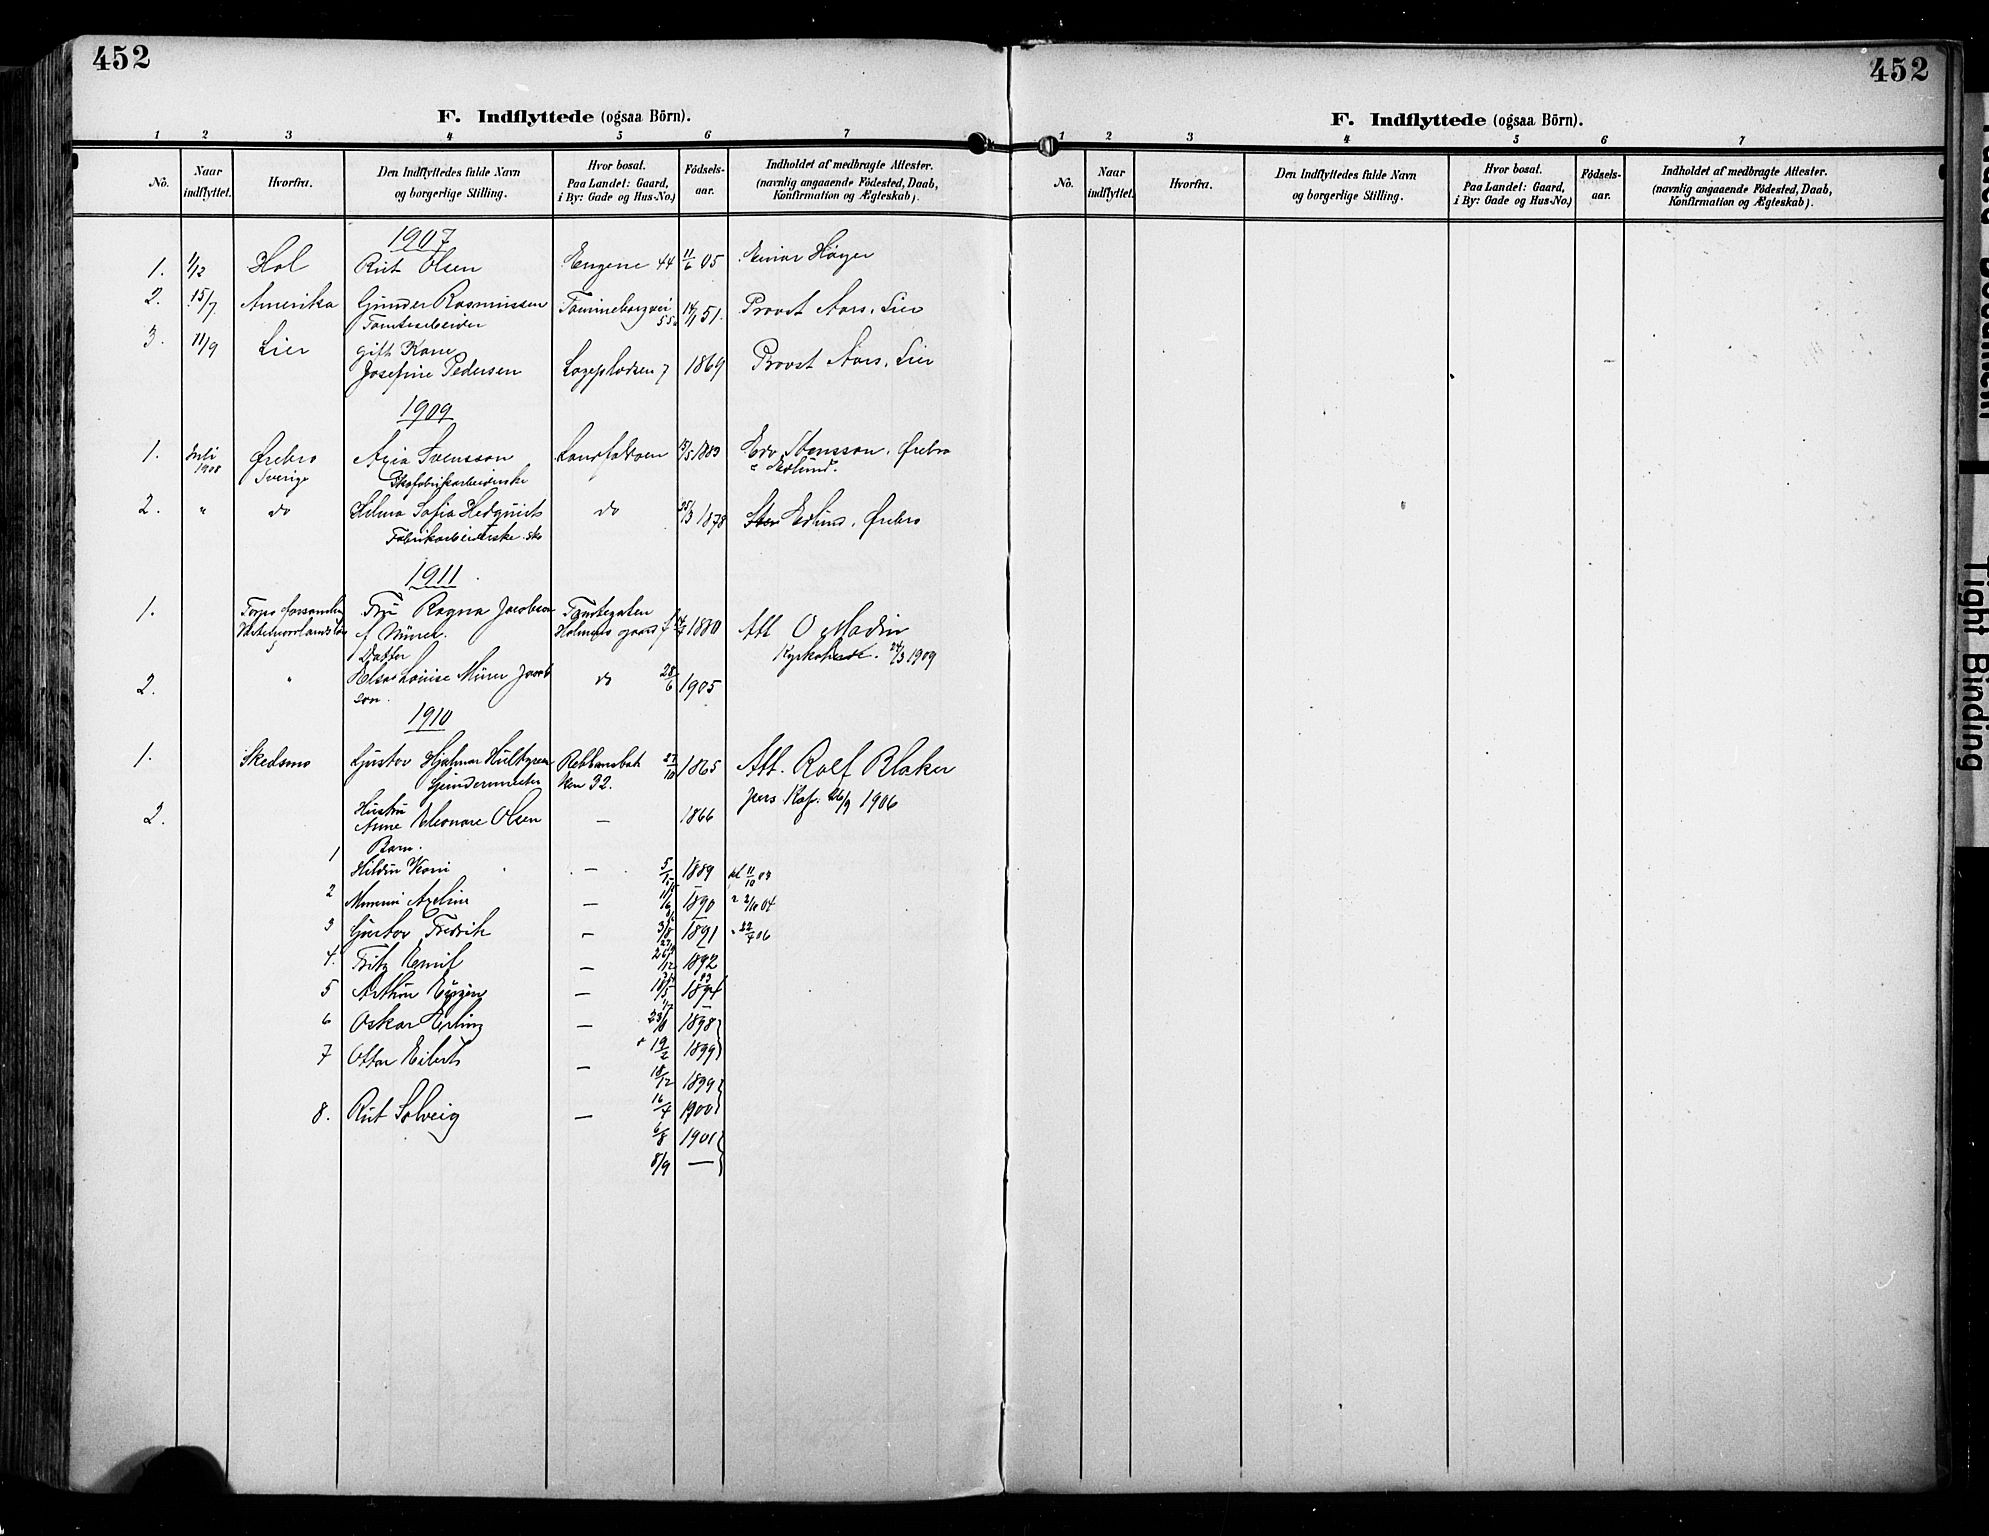 452
F. Indflyttede (ogsaa Börn).
1 2 3 4 5 6 7
No. Naar indflyttet. Hvorfra. Den Indflyttedes fulde Navn og borgerlige Stilling. Hvor bosat. Paa Landet: Gaard, i By: Gade og Hus-No.) Födsels-aar. Indholdet af medbragte Attester. (navnlig angaaende Födested, Daab, Konfirmation og Ægteskab).
1907
1. 1/12 Hol Rut Olsen Engene 44 11/6 05 Einar Höyer
2. 15/7 Amerika Gunder Rasmussen 14/1 51. Provst Aars, Lier
Tomtearbeider
3. 11/9 Lier gift Kone
Josefine Pedersen 7 1869 Provst Aars, Lier
1909
1. Juli 1908 Ørebro Svensson Landfaldöen /5 1883 Edv Stensson, Ørebro
Sverige Skofabrikarbeiderske Edlund.
2. " do Hilma Sofia Hedquist do 25/3 1878 Edlund, Ørebro
Fabrikarbeiderske sko
1911
1. Torps forsamling Fru Ragna Jacobson Tomtegaten f 1880 Att O Modin
f Mürer. Holmens gaard Kyrkoherde. 24/3 1909
Datter
2. " Elsa Louise Mürer Jacobson. do 28/6 1905
1910
1. Skedsmo Gustav Hjalmar Hultgren Rebbansbakken 32. 27/10 1865 Att. Rolf Blaker
pers Kap. 26/9 1906
2. Hustru
Anne Eleonore Olsen — 1866
Barn.
1 — 5/ 1889 11/10 03
2 Axeline — 1890 " 2/10 04
3 Gustav Fredrik — 1891 " 22/4 06
4. Fritz Emil — 1892
5 Arthur — 1894
6 Oskar Erling — 1898
19/2 1899
7 Ottar Eilert —
18/12 1899
8. Rut Solveig — 16/4 1900
6/8 1901
8/9 —
452
F. Indflyttede (ogsaa Börn).
1 2 3 4 5 6 7
No. Naar indflyttet. Hvorfra. Den Indflyttedes fulde Navn og borgerlige Stilling. Hvor bosat. Paa Landet: Gaard, i By: Gade og Hus-No.) Födsels-aar. Indholdet af medbragte Attester. (navnlig angaaende Födested, Daab, Konfirmation og Ægteskab).
Tight Binding